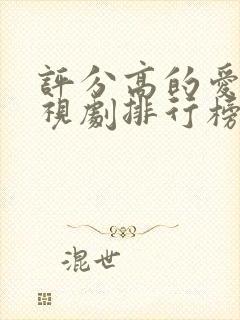 評分高的愛
視劇排行榜
混世